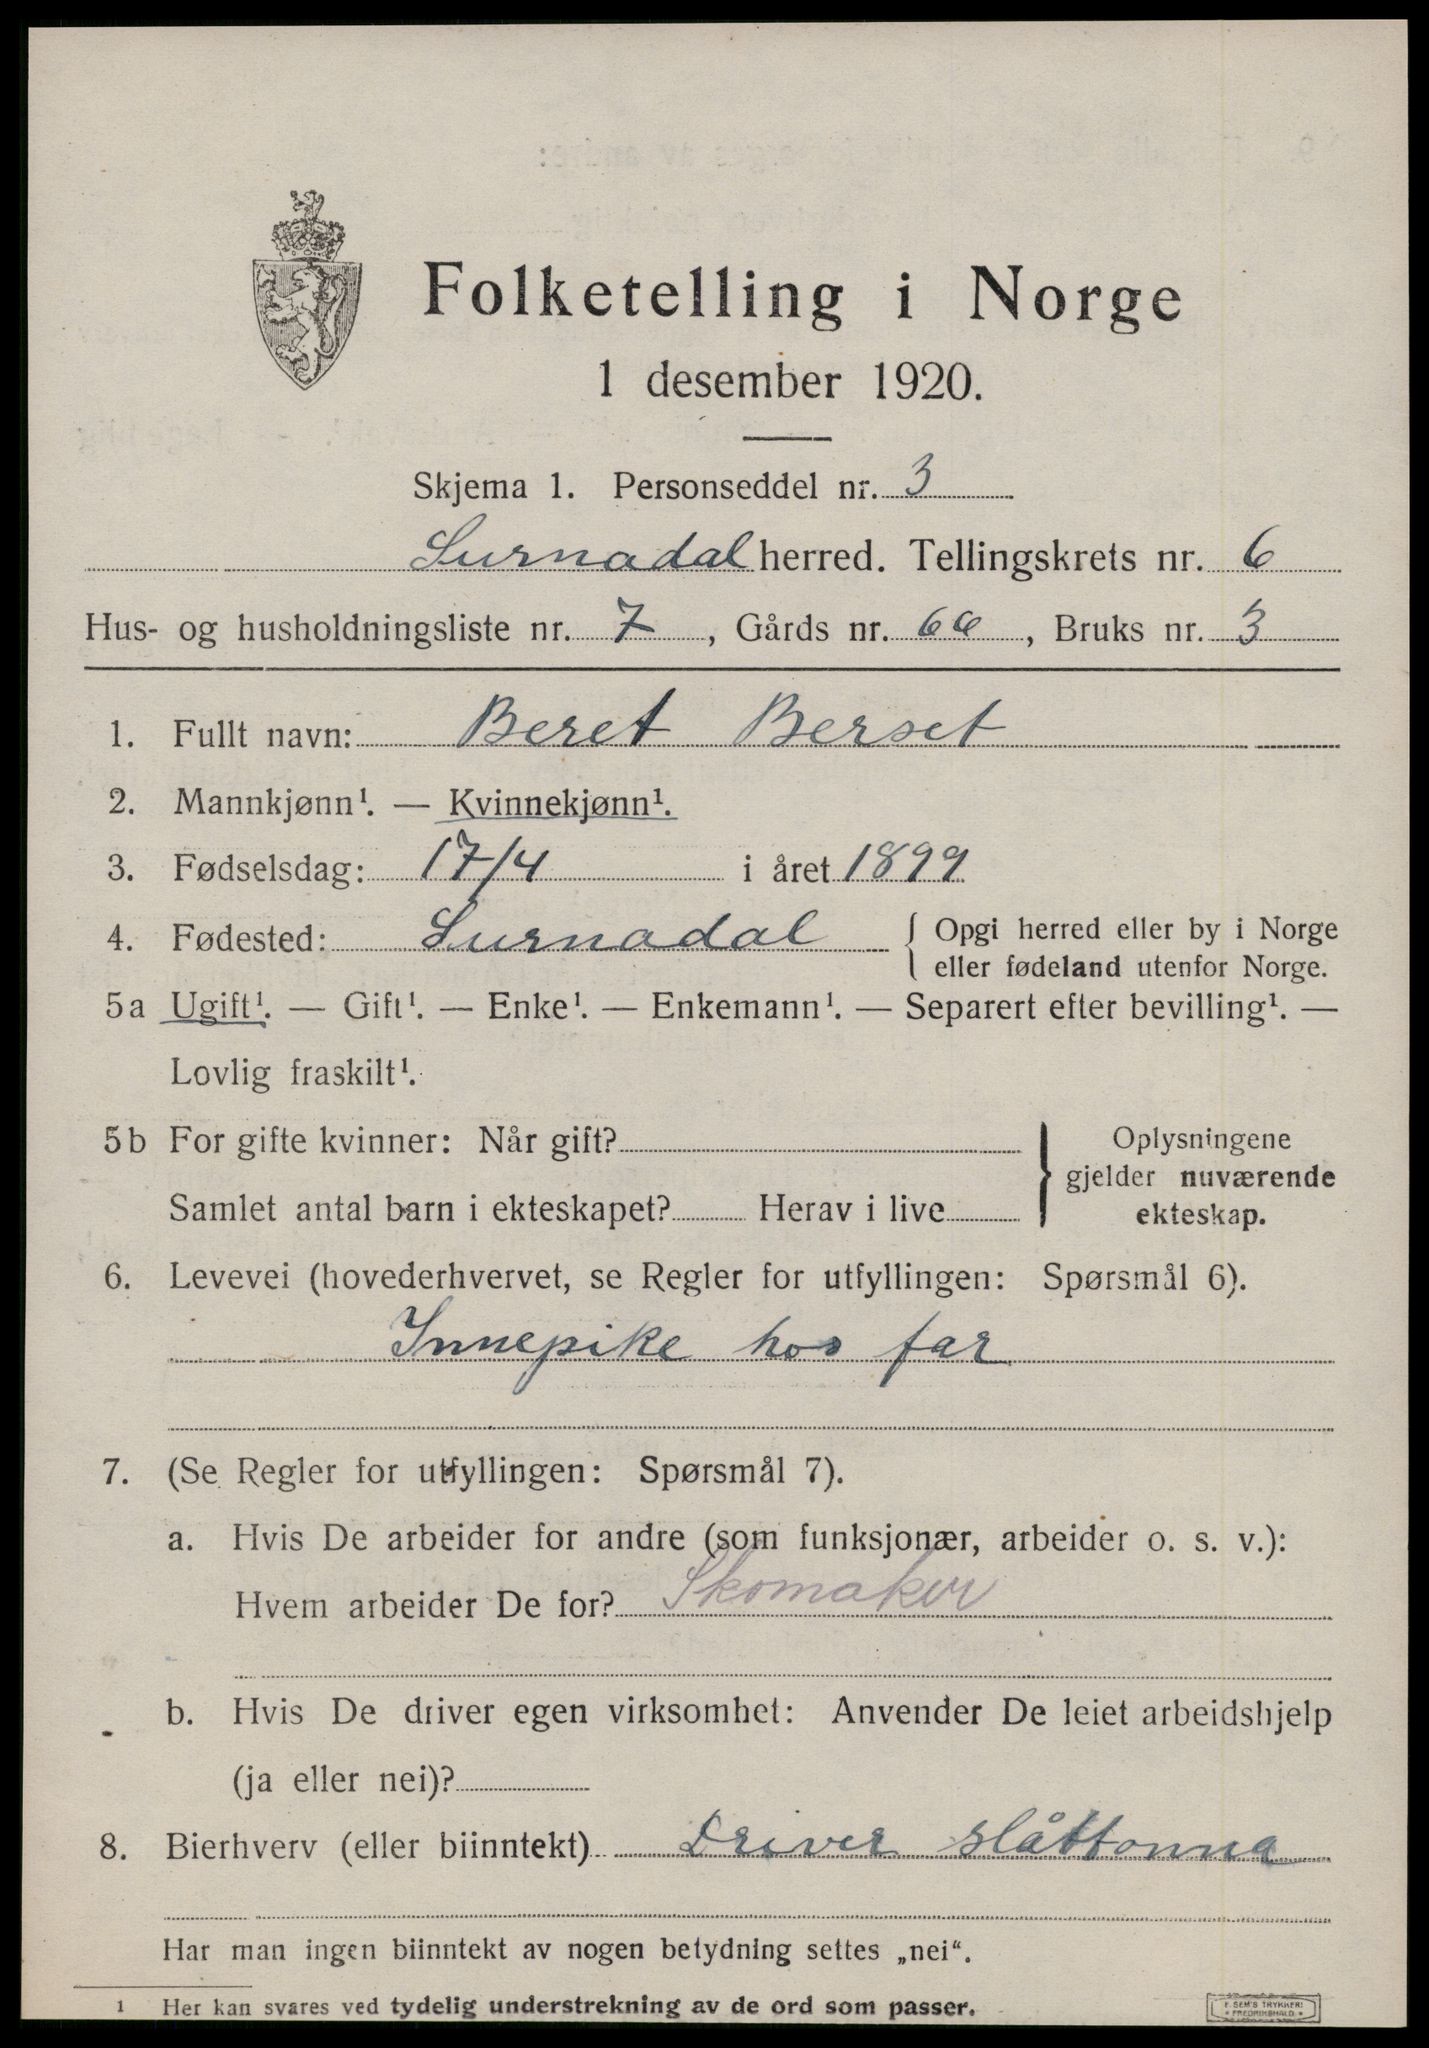 Folketelling i Norge
1 desember 1920.
Skjema 1. Personseddel nr. 3
Surnadal herred. Tellingskrets nr. 6
Hus- og husholdningsliste nr. 7, Gårds nr. 66, Bruks nr. 3
1. Fullt navn: Beret Berset
2. Mannkjønn¹. — Kvinnekjønn¹.
3. Fødselsdag: 17/4 i året 1899
4. Fødested: Surnadal { Opgi herred eller by i Norge
eller fødeland utenfor Norge.
5a Ugift¹. — Gift¹. — Enke¹. — Enkemann¹. — Separert efter bevilling¹. —
Lovlig fraskilt¹.
5b For gifte kvinner: Når gift?
Samlet antal barn i ekteskapet? Herav i live
} Oplysningene
gjelder nuværende
ekteskap.
6. Levevei (hovederhvervet, se Regler for utfyllingen: Spørsmål 6).
Innepike hos far
7. (Se Regler for utfyllingen: Spørsmål 7).
a. Hvis De arbeider for andre (som funksjonær, arbeider o. s. v.):
Hvem arbeider De for? Skomaker
b. Hvis De driver egen virksomhet: Anvender De leiet arbeidshjelp
(ja eller nei)?
8. Bierhverv (eller biinntekt) Driver slåttonna
Har man ingen biinntekt av nogen betydning settes „nei“.
1 Her kan svares ved tydelig understrekning av de ord som passer.
E. SEM'S TRYKKERI
FREDRIKSHALD.